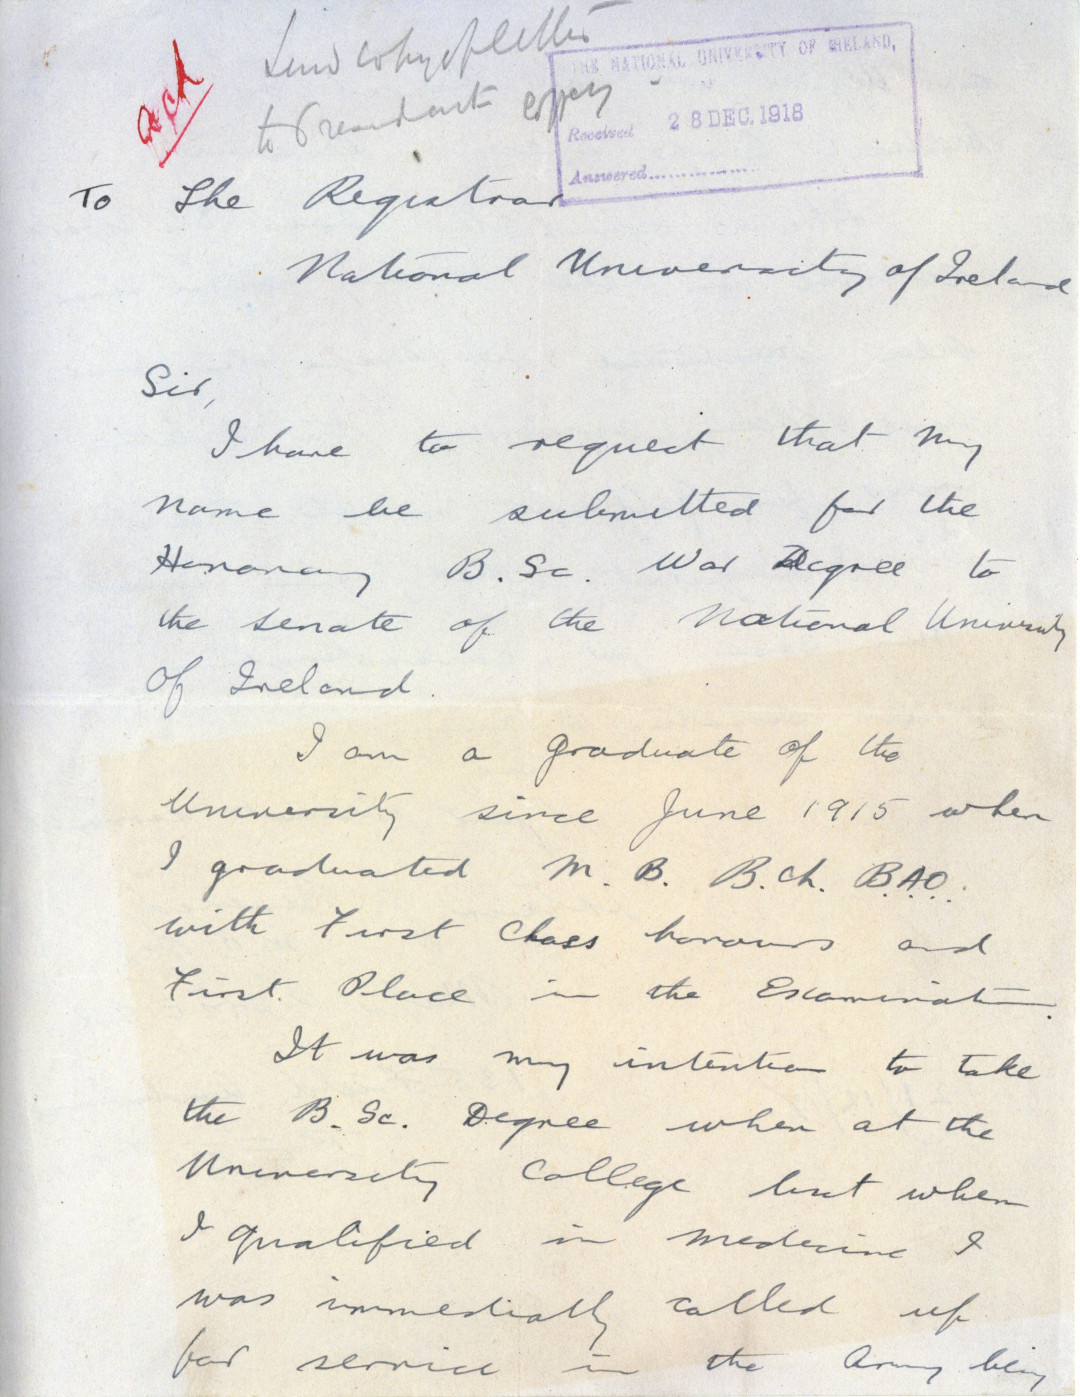 Send copy of letter
to President
ack
THE NATIONAL UNIVERSITY OF IRELAND,
Received 28 DEC. 1918
Answered..................
To The Registrar
National University of Ireland
Sir,
I have to request that my
name be submitted for the
Honorary B.Sc. War Degree to
the senate of the National University
of Ireland.
I am a graduate of the
University since June 1915 when
I graduated M.B. B.Ch. B.A.O.
with First Class honours and
First Place in the Examination.
It was my intention to take
the B.Sc. Degree when at the
University College but when
I qualified in medicine I
was immediatly called up
for service in the Army being